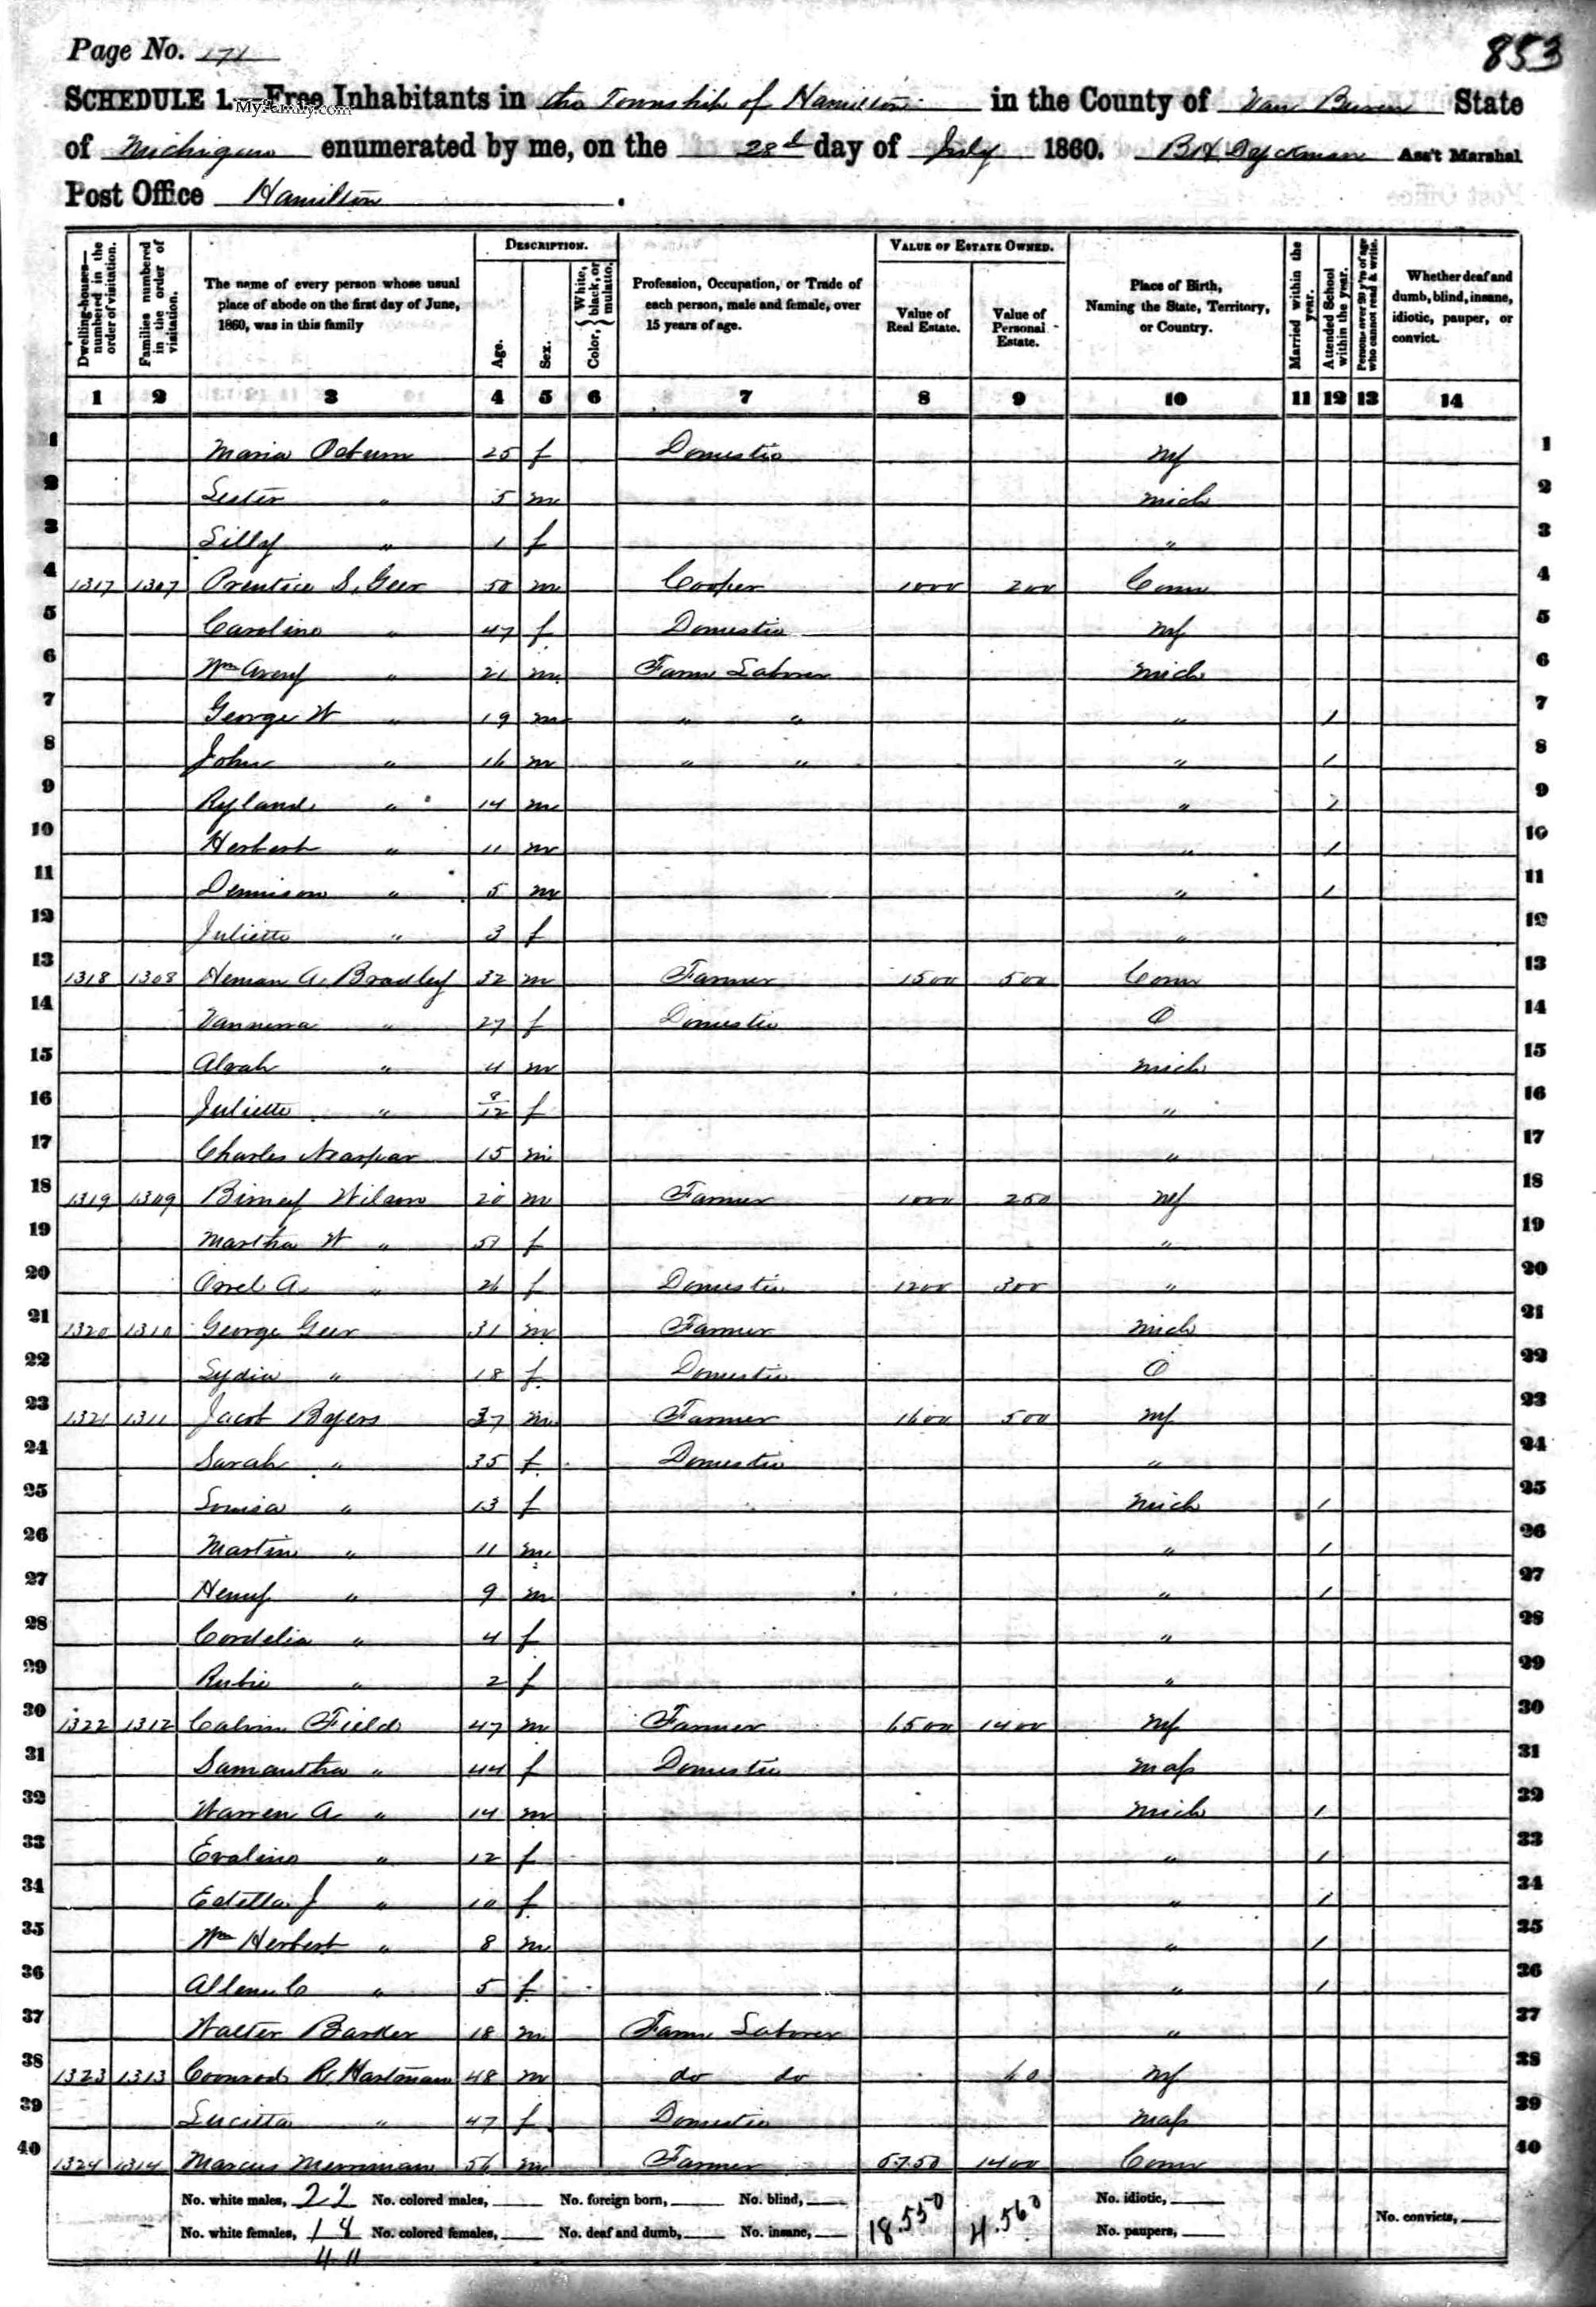 Page No. 171
853
SCHEDULE 1.—Free Inhabitants in the Township of Hamilton in the County of Van Buren State
Myfamily.com
of Michigan enumerated by me, on the 28th day of July 1860. B H Dyckman Ass't Marshal
Post Office Hamilton.
Dwelling-houses—numbered in the order of visitation.
Families numbered in the order of visitation.
The name of every person whose usual place of abode on the first day of June, 1860, was in this family
DESCRIPTION.
Age.
Sex.
Color, White, black, or mulatto.
Profession, Occupation, or Trade of each person, male and female, over 15 years of age.
VALUE OF ESTATE OWNED.
Value of Real Estate.
Value of Personal Estate.
Place of Birth, Naming the State, Territory, or Country.
Married within the year.
Attended School within the year.
Persons over 20 y'rs of age who cannot read & write.
Whether deaf and dumb, blind, insane, idiotic, pauper, or convict.
1 2 3 4 5 6 7 8 9 10 11 12 13 14
1 Maria 25 f Domestic NY 1
2 Lester " 5 m Mich 2
3 Lilly " 1 f " 3
4 1317 1307 Prentice S. Geer 50 m Cooper 1000 200 Conn 4
5 Caroline " 47 f Domestic NY 5
6 Wm Avery " 21 m Farm Laborer Mich 6
7 George W " 19 m " " " 1 7
8 John " 16 m " " " 1 8
9 Ryland " 14 m " 1 9
10 Herbert " 11 m " 1 10
11 Dennison " 5 m " 1 11
12 Juliette " 3 f " 12
13 1318 1308 Heman A. Bradley 32 m Farmer 1500 500 Conn 13
14 " 27 f Domestic O 14
15 Alvah " 4 m Mich 15
16 Juliette " 8/12 f " 16
17 Charles 15 m " 17
18 1319 1309 Birney Wilson 20 m Farmer 1000 250 NY 18
19 Martha W " 51 f " 19
20 Orrel A. " 26 f Domestic 1200 300 " 20
21 1320 1310 George Geer 31 m Farmer Mich 21
22 Lydia " 18 f Domestic O 22
23 1321 1311 Jacob Byers 37 m Farmer 1600 500 NY 23
24 Sarah " 35 f Domestic " 24
25 Louisa " 13 f Mich 1 25
26 Martin " 11 m " 1 26
27 Henry " 9 m " 1 27
28 Cordelia " 4 f " 28
29 Rubie " 2 f " 29
30 1322 1312 Calvin Field 47 m Farmer 6500 1400 NY 30
31 Samantha " 44 f Domestic Mass 31
32 Warren A. " 14 m Mich 1 32
33 Evaline " 12 f " 1 33
34 Estella J " 10 f " 1 34
35 Wm Herbert " 8 m " 1 35
36 Allen C " 5 f " 1 36
37 Walter Barker 18 m Farm Laborer " 37
38 1323 1313 Coonrod R. Hartman 48 m do do 60 NY 38
39 Lucitta " 47 f Domestic Mass 39
40 1324 1314 Marcus Merriman 56 m Farmer 5750 1400 Conn 40
No. white males, 22 No. colored males, No. foreign born, No. blind, 18.550 4.560 No. idiotic, No. convicts,
No. white females, 18 No. colored females, No. deaf and dumb, No. insane, No. paupers,